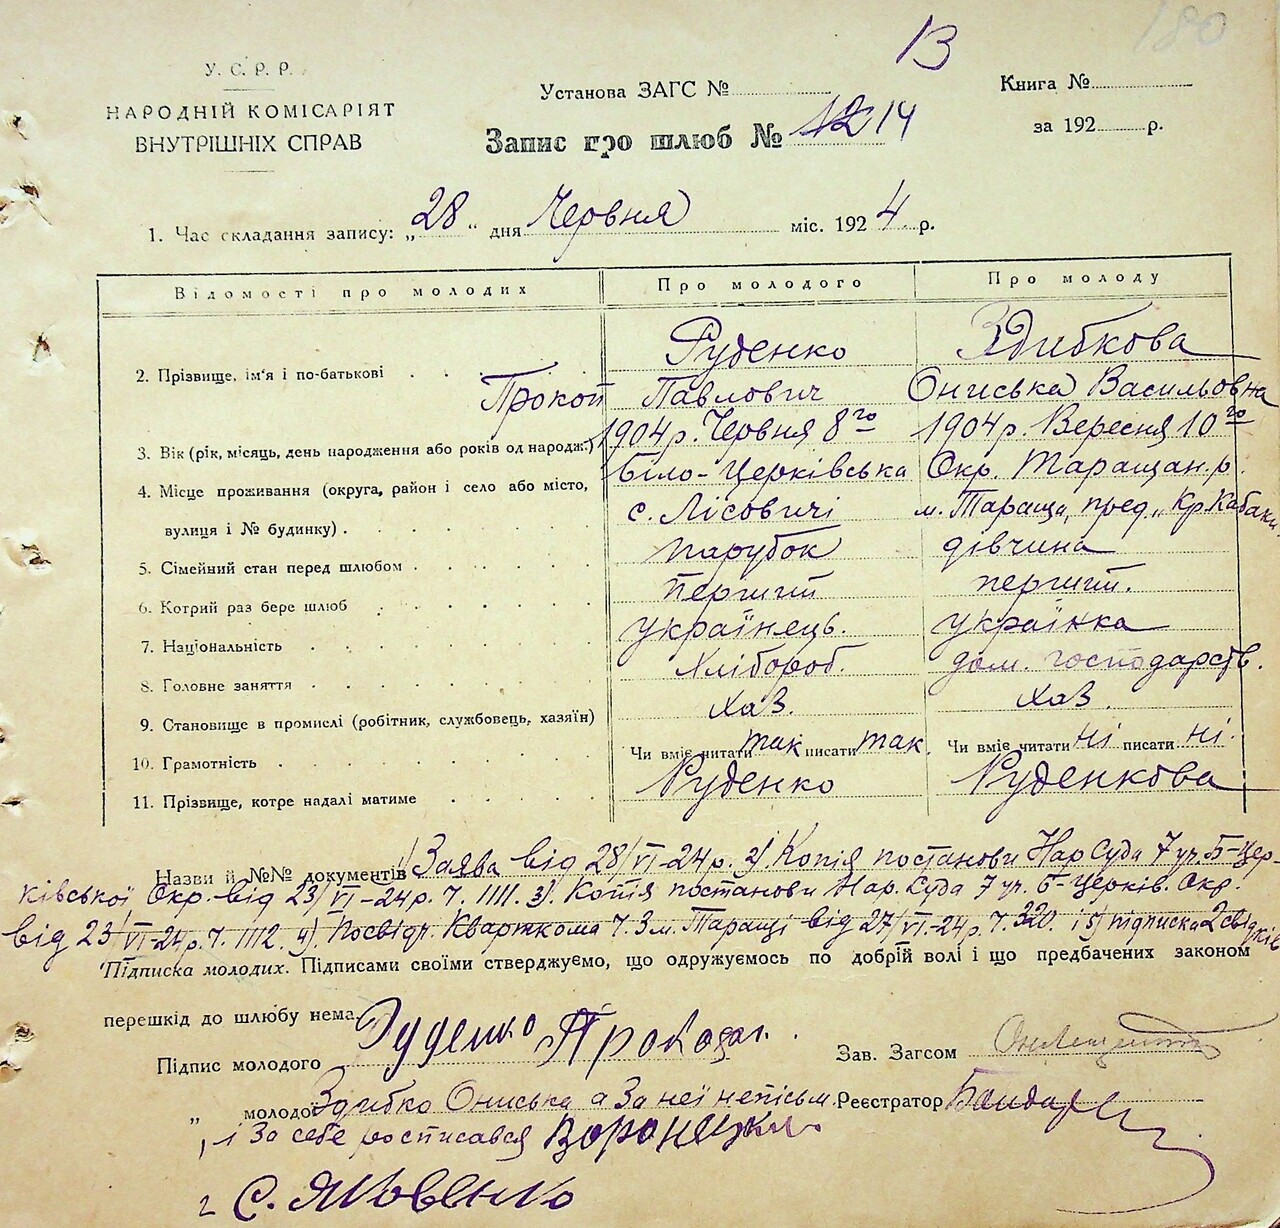 13
180
У. С. Р. Р.
НАРОДНІЙ КОМІСАРІЯТ
ВНУТРІШНІХ СПРАВ
Установа ЗАГС №
Книга №
Запис про шлюб № 12 14
за 192 р.
1. Час складання запису: „28“ дня Червня міс. 1924 р.
Відомості про молодих Про молодого Про молоду
2. Прізвище, ім'я і по-батькові Руденко Здибкова
Прокоп Павлович Ониська Васильовна
3. Вік (рік, місяць, день народження або років од народж.) 1904 р. Червня 8го 1904 р. Вересня 10го
4. Місце проживання (округа, район і село або місто, Біло-Церківська Окр. Таращан. р.
вулиця і № будинку) с. Лісовичі м. Тараща, пред. „Кр. Кабаки
5. Сімейний стан перед шлюбом парубок дівчина
6. Котрий раз бере шлюб перший перший.
7. Національність українець. українка
8. Головне заняття Хлібороб. дом. господарств.
9. Становище в промислі (робітник, службовець, хазяїн) Хаз. Хаз.
10. Грамотність Чи вміє читати так писати так. Чи вміє читати ні писати ні.
11. Прізвище, котре надалі матиме Руденко Руденкова
Назви й №№ документів 1) Заява від 28/VI-24 р. 2) Копія постанови Нар Суда 7 уч. Б-Цер-
ківської Окр. від 23/VI-24 р. ч. 1111. 3) Копія постанови Нар. Суда 7 уч. Б-Церків. Окр.
від 23/VI-24 р. ч. 1112. 4) Посвідч. Кварткома ч. 3 м. Таращі від 27/VI-24 р. ч. 320. і 5) підписка 2 свідків
Підписка молодих. Підписами своїми стверджуємо, що одружуємось по добрій волі і що предбачених законом
перешкід до шлюбу нема.
Підпис молодого Руденко Зав. Загсом
„ молодої Здибко Ониська а за неї непісьм. Реєстратор
„ і За себе росписався
2 С. Яковенко